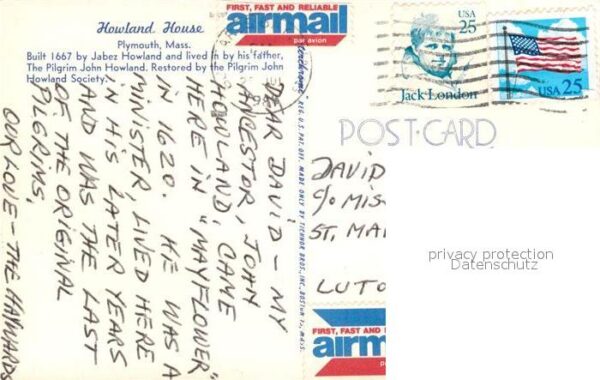 Howland House
Plymouth, Mass.
Built 1667 by Jabez Howland and lived in by his father,
The Pilgrim John Howland. Restored by the Pilgrim John
Howland Society.
FIRST, FAST AND RELIABLE
airmail
par avion
USA
25
Jack London
USA 25
POST-CARD
DEAR DAVID - MY
ANCESTOR, JOHN
HOWLAND, CAME
HERE IN "MAYFLOWER"
IN 1620. HE WAS A
MINISTER, LIVED HERE
IN HIS LATER YEARS
AND WAS THE LAST
OF THE ORIGINAL
PILGRIMS,
OUR LOVE - THE HAYWARDS
REG. U.S. PAT. OFF. MADE ONLY BY TICHNOR BROS., INC., BOSTON 15, MASS.
DAVID
c/o MIS
ST. MA
LUTO
privacy protection
Datenschutz
FIRST, FAST AND
airm
par